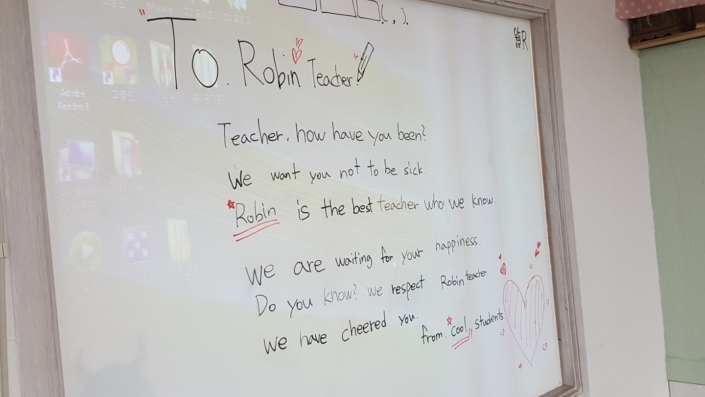 "To. Robin Teacher"
Teacher, how have you been?
We want you not to be sick
Robin is the best teacher who we know.
We are waiting for your happiness.
Do you know? we respect Robin teacher
We have cheered you.
from. cool students
Adobe